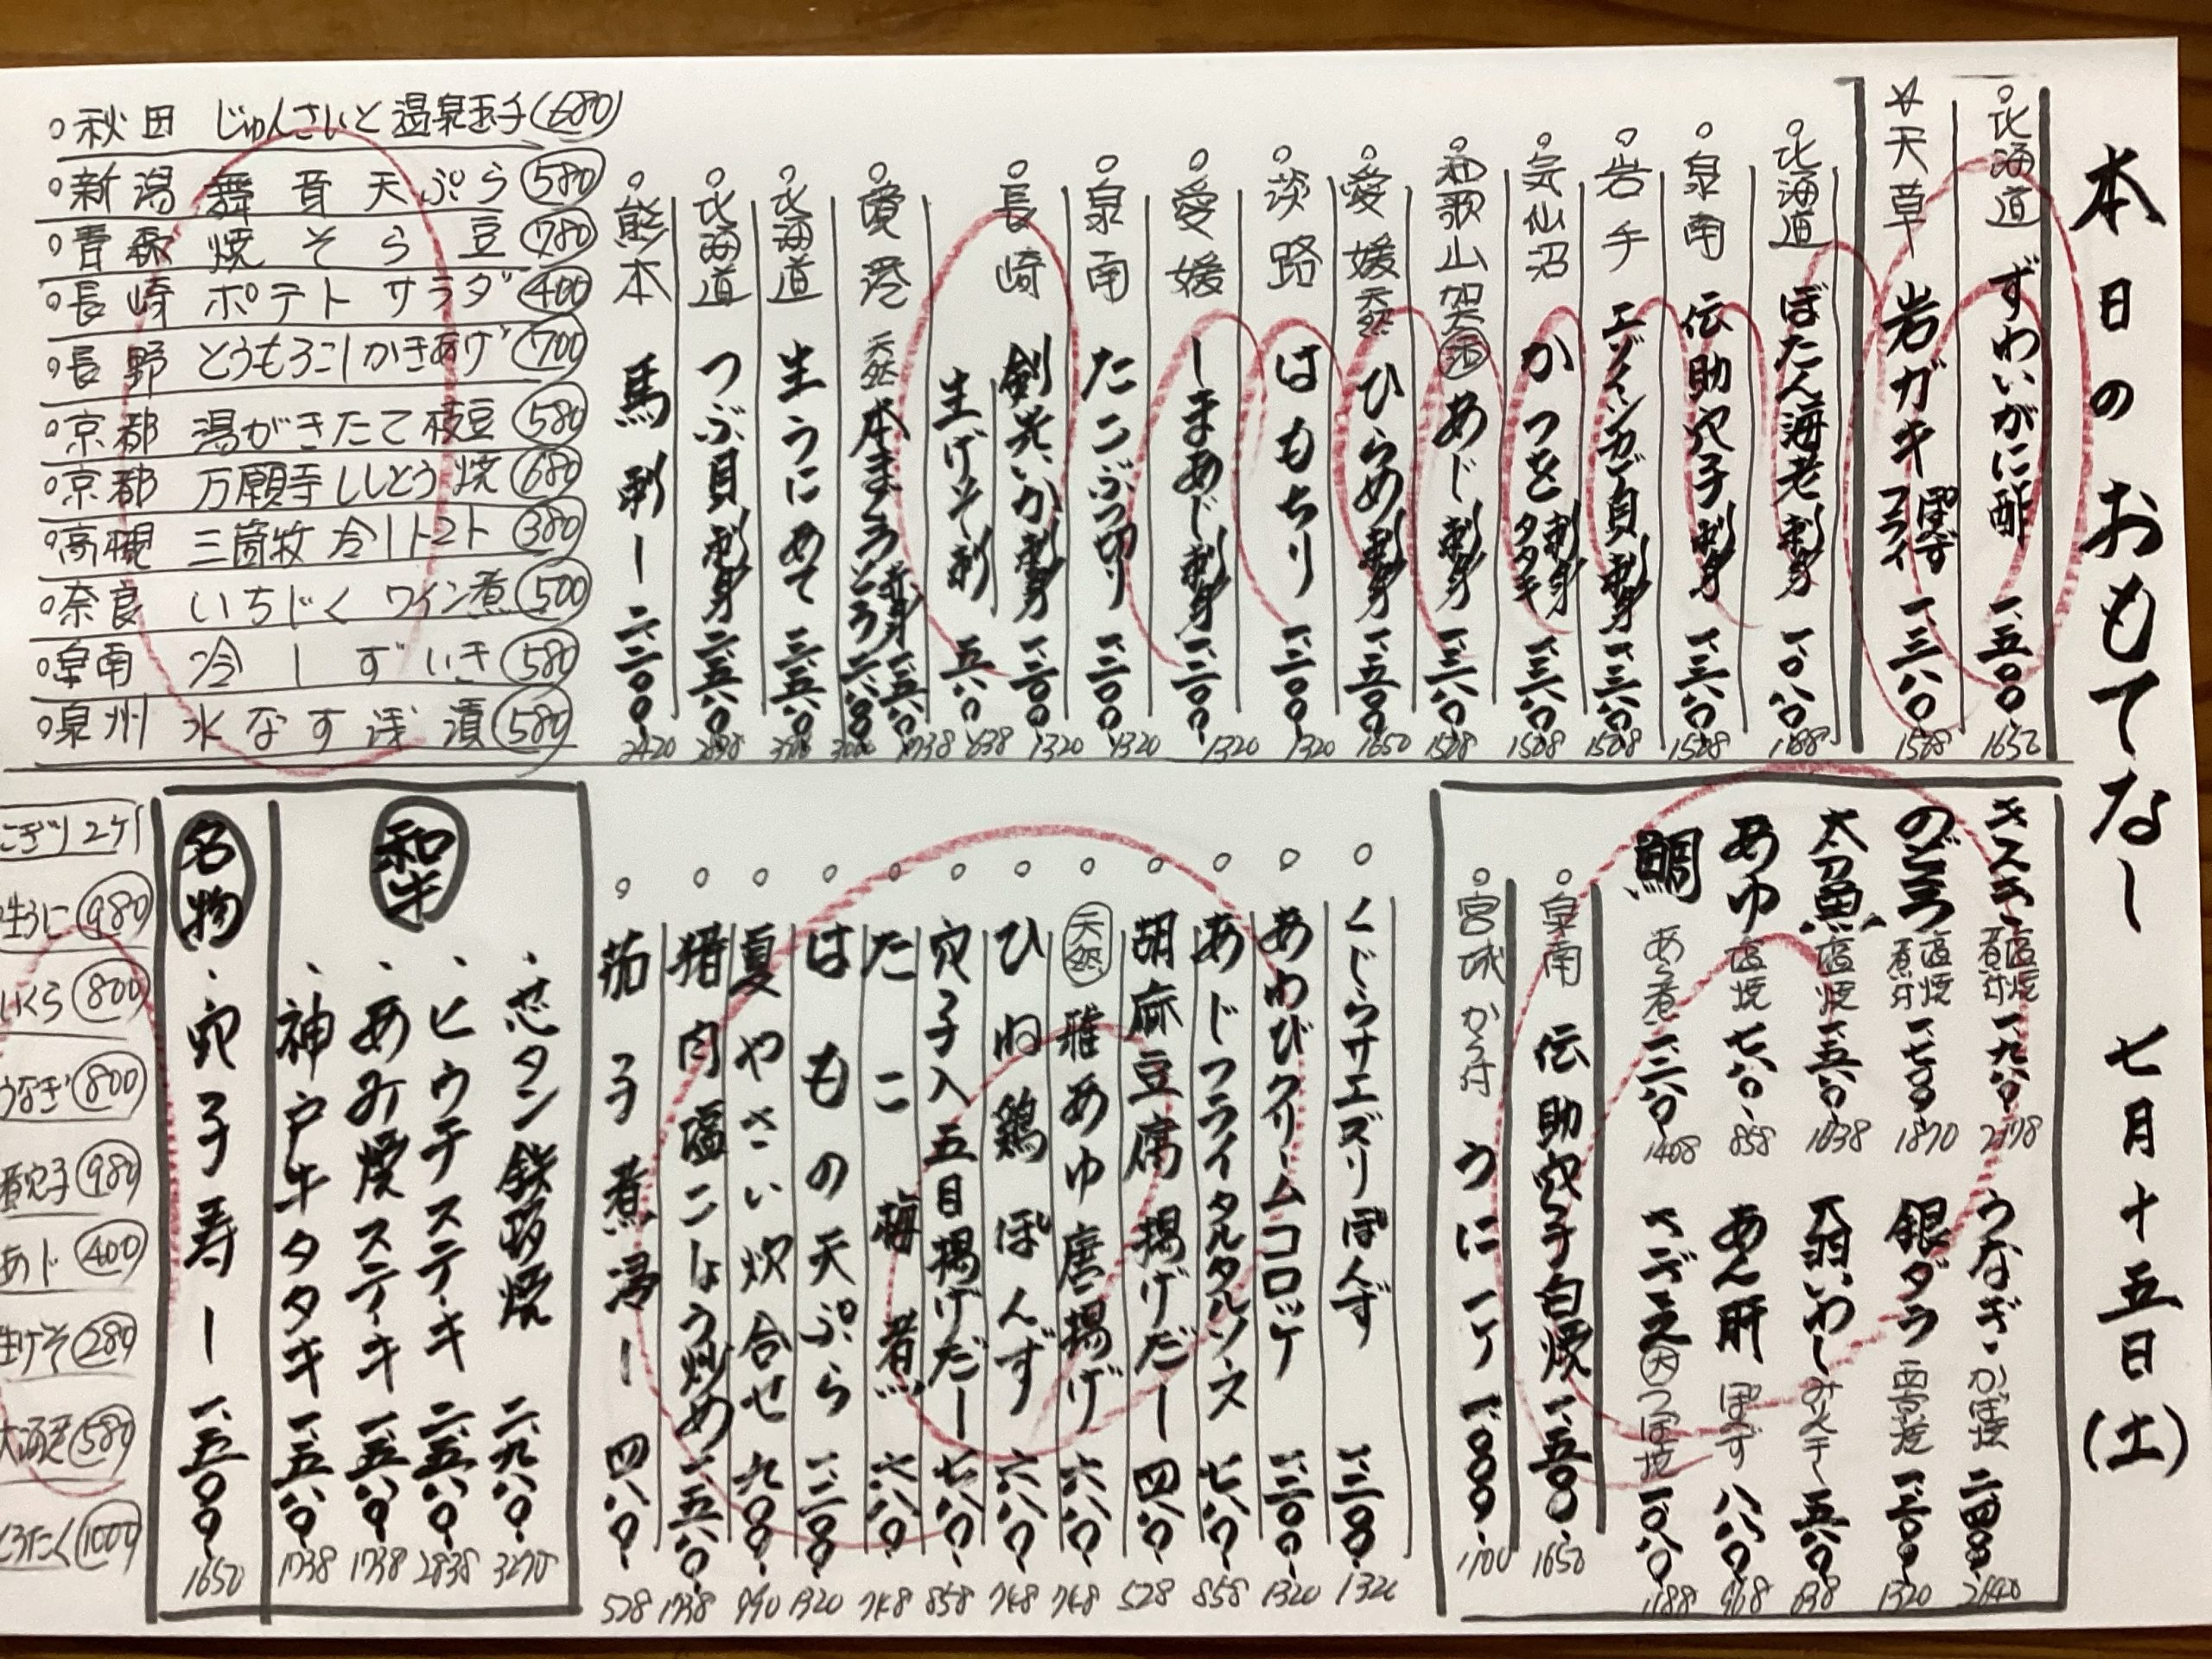 本日のおもてなし 七月十五日(土)
北海道 ずわいがに酢 一、五〇〇 1650
☆天草 岩ガキ ぽんず フライ 一、三八〇 1518
北海道 ぼたん海老刺身 一、〇八〇 1188
泉南 伝助穴子刺身 一、三八〇 1518
岩手 エゾイシカゲ貝刺身 一、三八〇 1518
気仙沼 かつを 刺身 タタキ 一、三八〇 1518
和歌山加太 活 あじ刺身 一、三八〇 1518
愛媛 天然 ひらめ刺身 一、五〇〇 1650
淡路 はもちり 一、二〇〇 1320
愛媛 しまあじ刺身 一、二〇〇 1320
泉南 たこぶつ切り 一、二〇〇 1320
長崎 剣先いか刺身 一、二〇〇 1320
生げそ刺 五八〇 638
天然 本まぐろ 赤身 一、五八〇 1738 とろ 二、八〇〇
北海道 生うにめて 三、五〇〇
北海道 つぶ貝刺身 二、五八〇
熊本 馬刺し 二、二〇〇 2420
秋田 じゅんさいと温泉玉子 680
新潟 舞茸天ぷら 580
青森 焼そら豆 780
長崎 ポテトサラダ 400
長野 とうもろこしかきあげ 700
京都 湯がきたて枝豆 580
京都 万願寺ししとう焼 680
高槻 三箇牧 冷しトマト 380
奈良 いちじくワイン煮 500
泉南 冷しずいき 580
泉州 水なす浅漬 580
キス 塩焼 煮付 一、九八〇 2178
のどぐろ 塩焼 煮付 一、七〇〇 1870
太刀魚 塩焼
あゆ 塩焼 七八〇 858
鯛 あら煮 一、二八〇 1408
うなぎ かば焼 二、四〇〇 2640
銀ダラ 西京焼 一、二〇〇 1320
いわし
あん肝 ぽんず 八八〇 968
サザエ 大 つぼ焼 一、〇八〇 1188
泉南 伝助穴子白焼 一、五〇〇 1650
宮城 から付 うに一ケ 一、〇〇〇 1100
くじらサエズリぽんず 一、二〇〇 1320
あわびクリームコロッケ 一、二〇〇 1320
あじフライタルタルソース 七八〇 858
胡麻豆腐 揚げだし 四八〇 528
天然 稚あゆ唐揚げ 六八〇 748
ひね鶏ぽんず 六八〇 748
穴子入五目揚げだし 七八〇 858
たこ梅煮 六八〇 748
はもの天ぷら 一、二〇〇 1320
夏やさい炊合せ 九〇〇 990
猪肉塩こしょう炒め 一、五八〇 1738
茄子煮浸し 四八〇 528
和牛
芯タン鉄砲焼 二、九八〇 3278
ヒウチステーキ 二、五八〇 2838
あみ焼ステーキ 一、五八〇 1738
神戸牛タタキ 一、五八〇 1738
名物 穴子寿し 一、五〇〇 1650
こぎり2ケ
生うに 980
いくら 800
うなぎ 800
煮穴子 980
あじ 400
生げそ 280
大海老 580
とろたく 1000